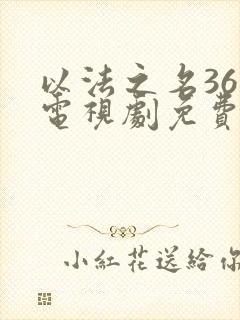 以法之名36
電視劇免費
小紅花送給你